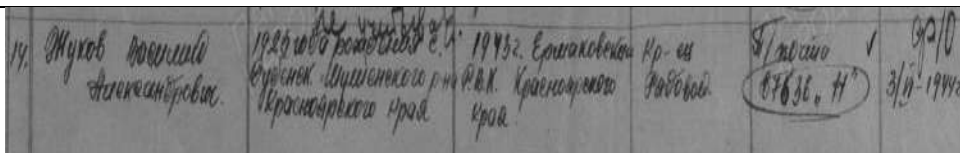 14. Жуков Василий Александрович.
1925 года рождения с. Суденск Шушенского р-на Красноярского края
1943г. Ермаковским Р.В.К. Красноярского края
Кр-ец Рядовой
П/почта 07636 „Н"
3/VI-1944г